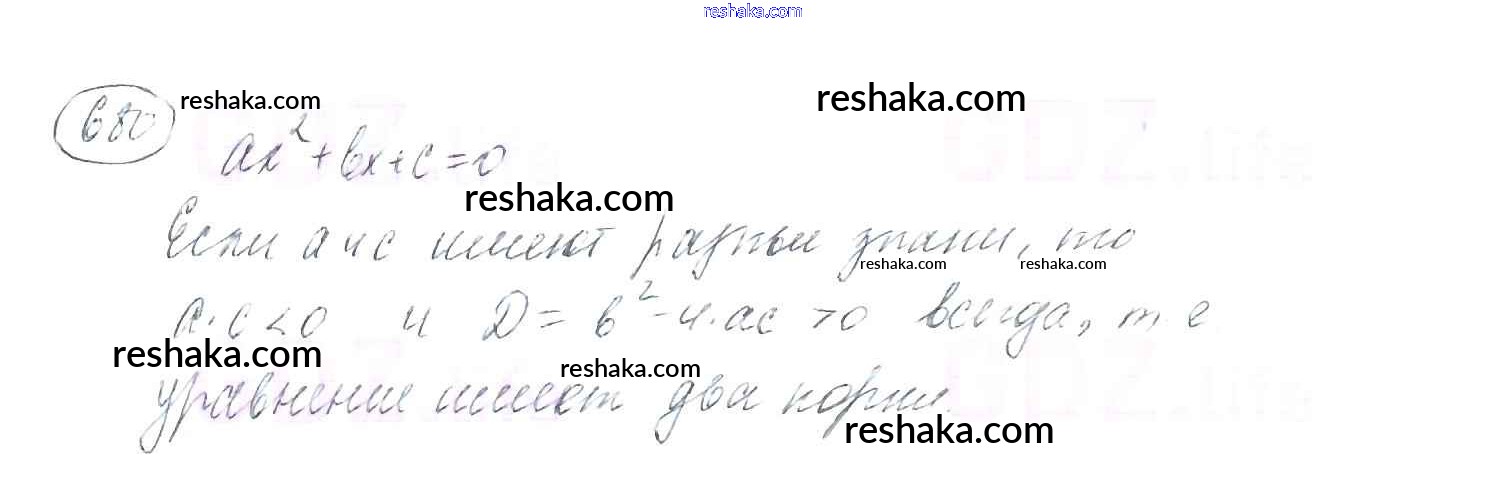 reshaka.com
680 reshaka.com reshaka.com
ax² + bx + c = 0
reshaka.com
Если a и c имеют разный знаки, то
reshaka.com reshaka.com
a·c < 0 и D = b² - 4·ac > 0 всегда, т.е.
reshaka.com reshaka.com
уравнение имеет два корня.
reshaka.com